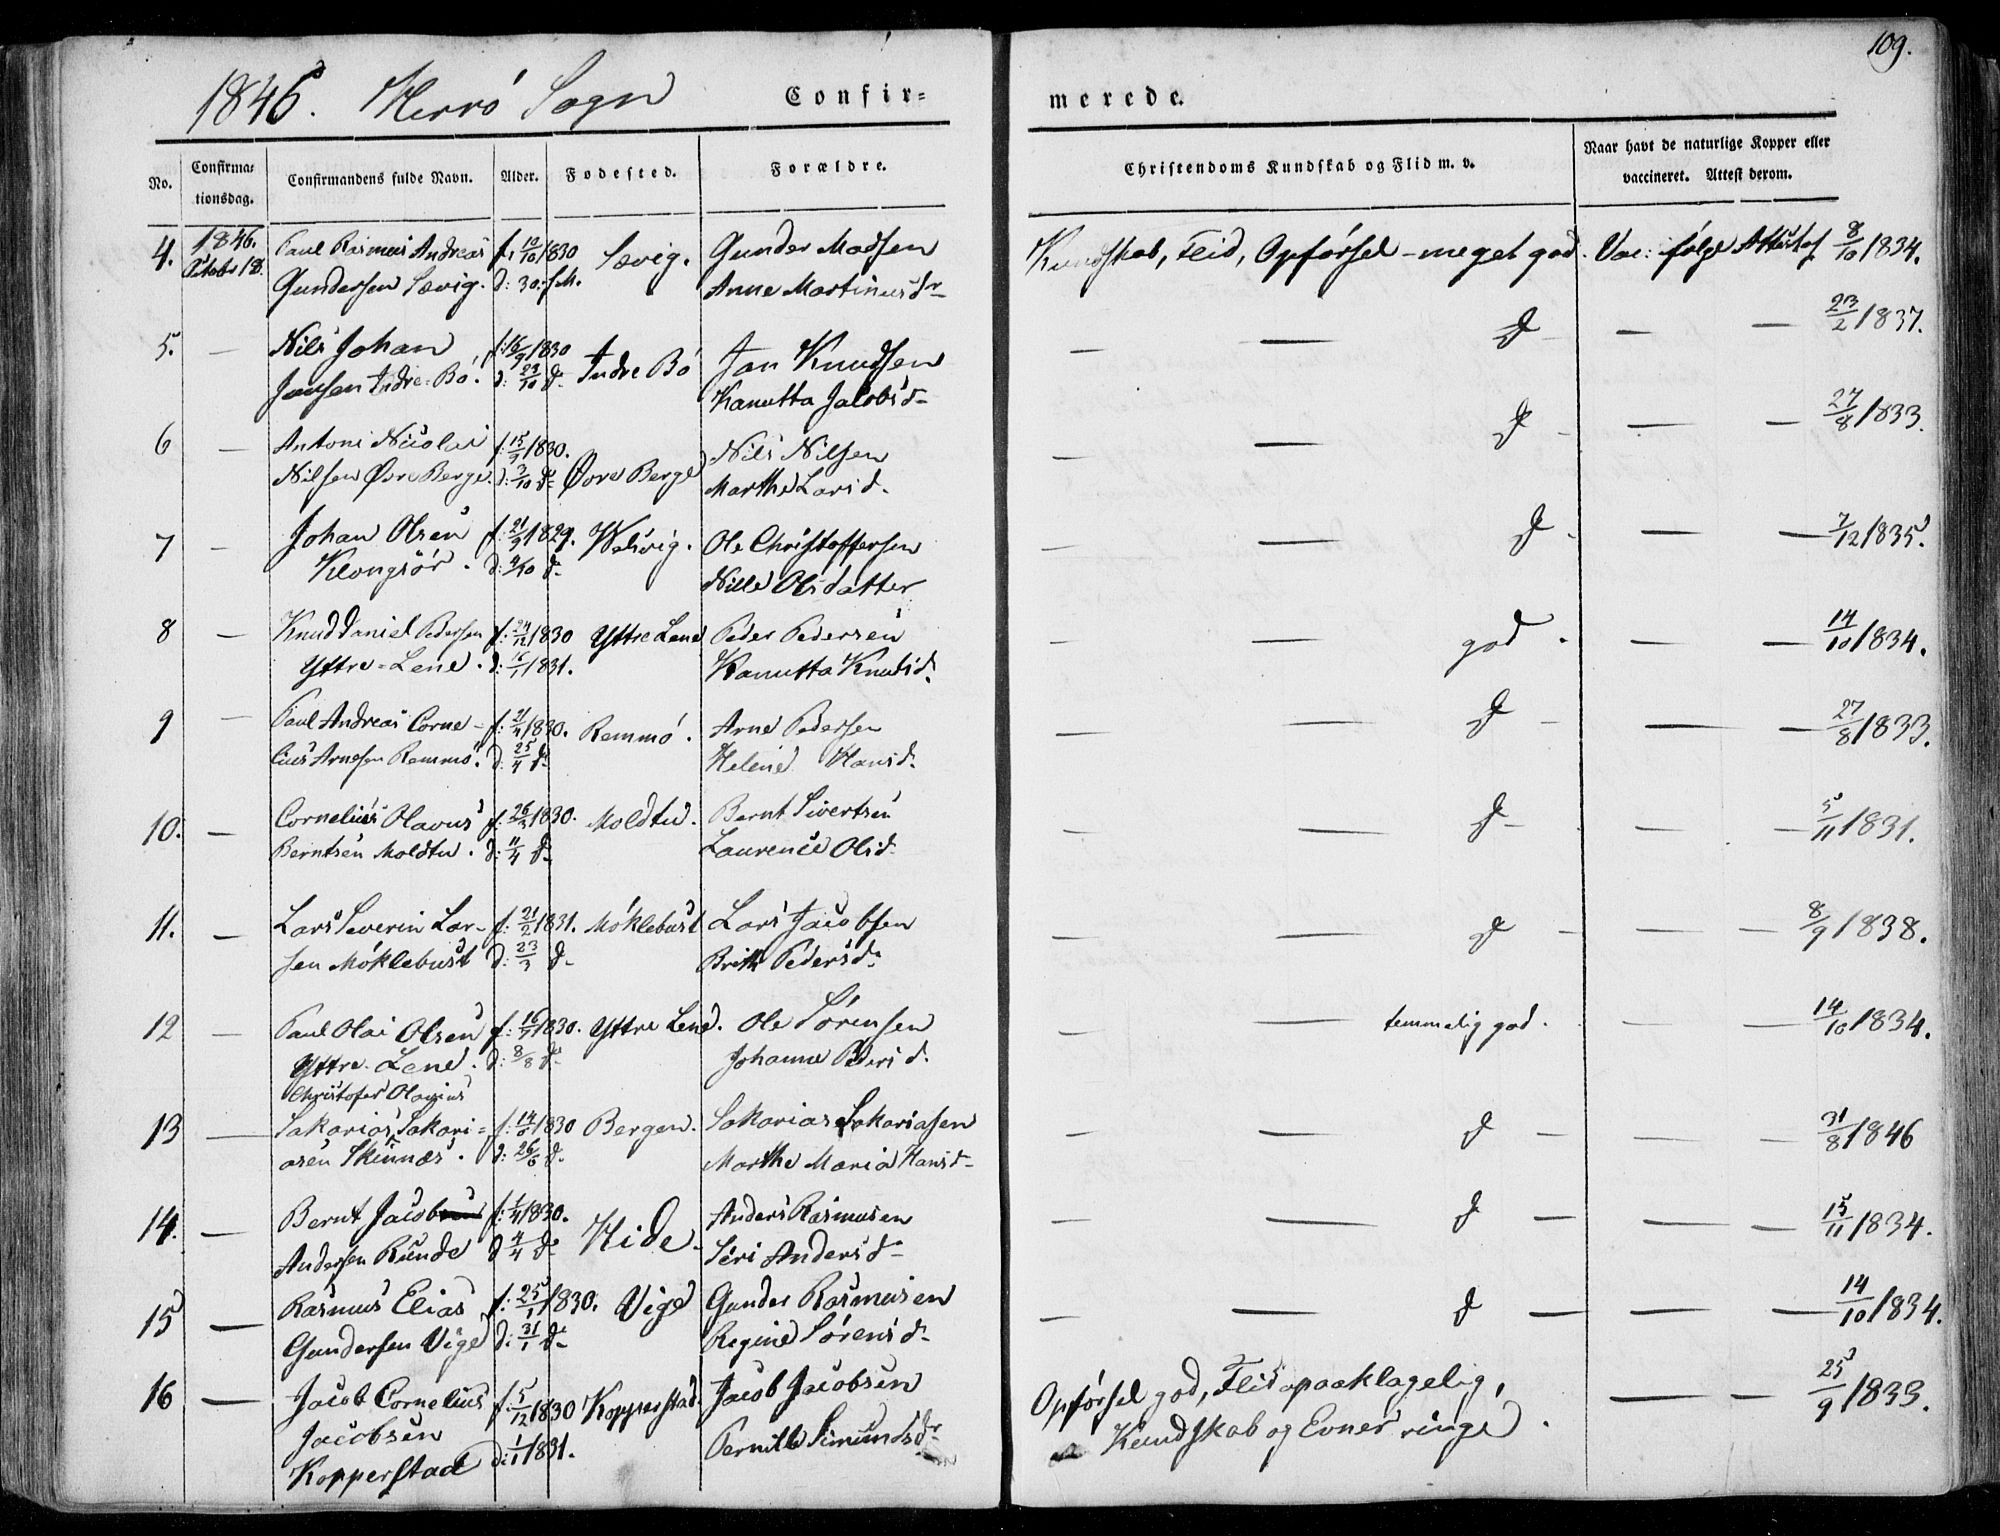 109.
1846. Herrö Sogn Confir= merede.
No. Confirma= tionsdag. Confirmandens fulde Navn. Alder. Fødested. Forældre. Christendoms Kundskab og Flid m. v. Naar havt de naturlige Kopper eller vaccineret. Attest derom.
4. 1846. Paul Rasmus Andreas f. 10/10 1830 Sævig. Gunder Madsen Kundskab, Flid, Opförsel - meget god. Vac: følge Attest af 8/10 1834.
Octobr 18. Gundersen Sævig. d: 30. s. M. Anne Martinusdr
5. — Nils Johan f: 16/9 1830 Indre Bö Jan Knudsen — — do — — — 23/2 1837.
Jansen Indre-Bö. d: 23/10 do Kanutta Jacobsd.
6 — Antoni Nicolai f: 15/9 1830. Øvre Berge Nils Nilsen — — do — — — 27/8 1833.
Nilsen Øvre Berge. d: 3/10 do Marthe Larsd.
7 — Johan Olsen f. 21/9 1829. Ole Christoffersen — — do — — — 7/12 1835.
Klongsör. d: 4/10 do Nille Olsdatter
8 — Knud Daniel Pedersen f: 24/12 1830 Yttre Lene Peder Pedersen — — god. — — 14/10 1834.
Yttre-Lene. d: 16/1 1831. Kanutta Knudsd.
9 — Paul Andreas Corne- f: 21/4 1830. Remmö. Arne Pedersen — — do — — — 27/8 1833.
lius Arnesen Remmö. d: 25/4 do Helene Hansd.
10. — Cornelius Olavus f. 26/3 1830. Moldtu. Bernt Sivertsen — — do — — — 5/11 1831.
Berntsen Moldtu. d: 11/4 do Laurence Olsd.
11. — Lars Severin Lar- f: 21/2 1831. Möklebust Lars Jacobsen — — do — — — 8/9 1838.
sen Möklebust d: 23/3 do Brithe Pedersd.
12 — Paul Olai Olsen f: 16/7 1830. Yttre Lene. Ole Sörensen — — temmelig god. — — 14/10 1834.
Yttre-Lene. d: 8/8 do Johanne Pedersd.
Christofer Olavius
13 — Sakarias Sakari= f: 14/6 1830 Bergen. Sakarias Sakariasen — — do — — — 31/8 1846
asen Skinnes. d: 26/6 do Marthe Maria Hansd.
14. — Bernt Jacob f: 1/4 1830. Hide. Anders Rasmusen — — do — — — 15/11 1834.
Andersen Runde d 4/4 do Siri Andersd.
15 — Rasmus Elias f. 25/1 1830. Vige Gunder Rasmusen — — do — — — 14/10 1834.
Gundersen Vige d: 31/1 do Regine Sörensd.
16 — Jacob Cornelius f. 5/12 1830 Kopperstad. Jacob Jacobsen Opförsel god, Flid upaaklagelig, — — 25/9 1833.
Jacobsen d: 1/1 1831. Pernille Simundsdr Kundskab og Evner ringe.
Kopperstad